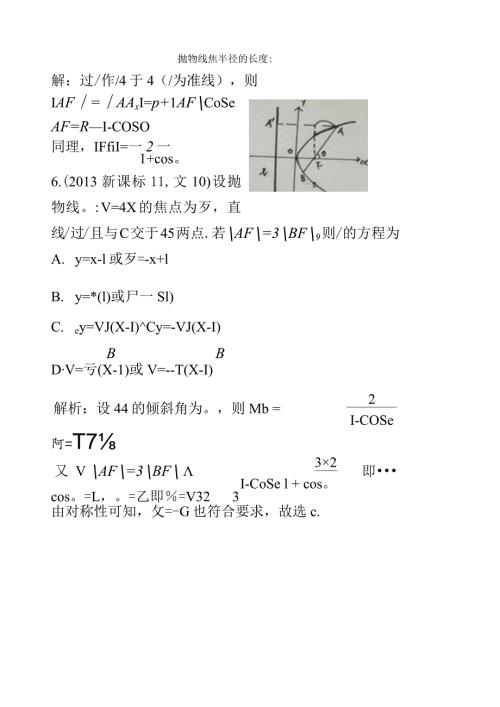 抛物线焦半径的长度:
解：过/作/4 于 4（/为准线），则
IAF｜=｜AAxI=p+1AF\CoSe
AF=R—I-COSO
同理，IFfiI=一 2 一
1+cos。
6.(2013 新课标 11, 文 10)设抛
物线。: V=4X 的焦点为歹，直
线/过/且与 C 交于 45 两点. 若\AF\=3\BF\9 则/的方程为
A. y=x-l 或歹=-x+l
B. y=*(l)或尸一 Sl)
C. cy=VJ(X-I)^Cy=-VJ(X-I)
B B
D·V=亏(X-1)或 V=--T(X-I)
解析：设 44 的倾斜角为。，则 Mb =
2
I-COSe
阿=T7⅛
又 V \AF\=3\BF\ Λ
3×2
I-CoSe l + cos。
即•••
cos。=L，。=乙即％=V32 3
由对称性可知，攵=−G 也符合要求，故选 c.
A'
A
θ
F
B
l
x